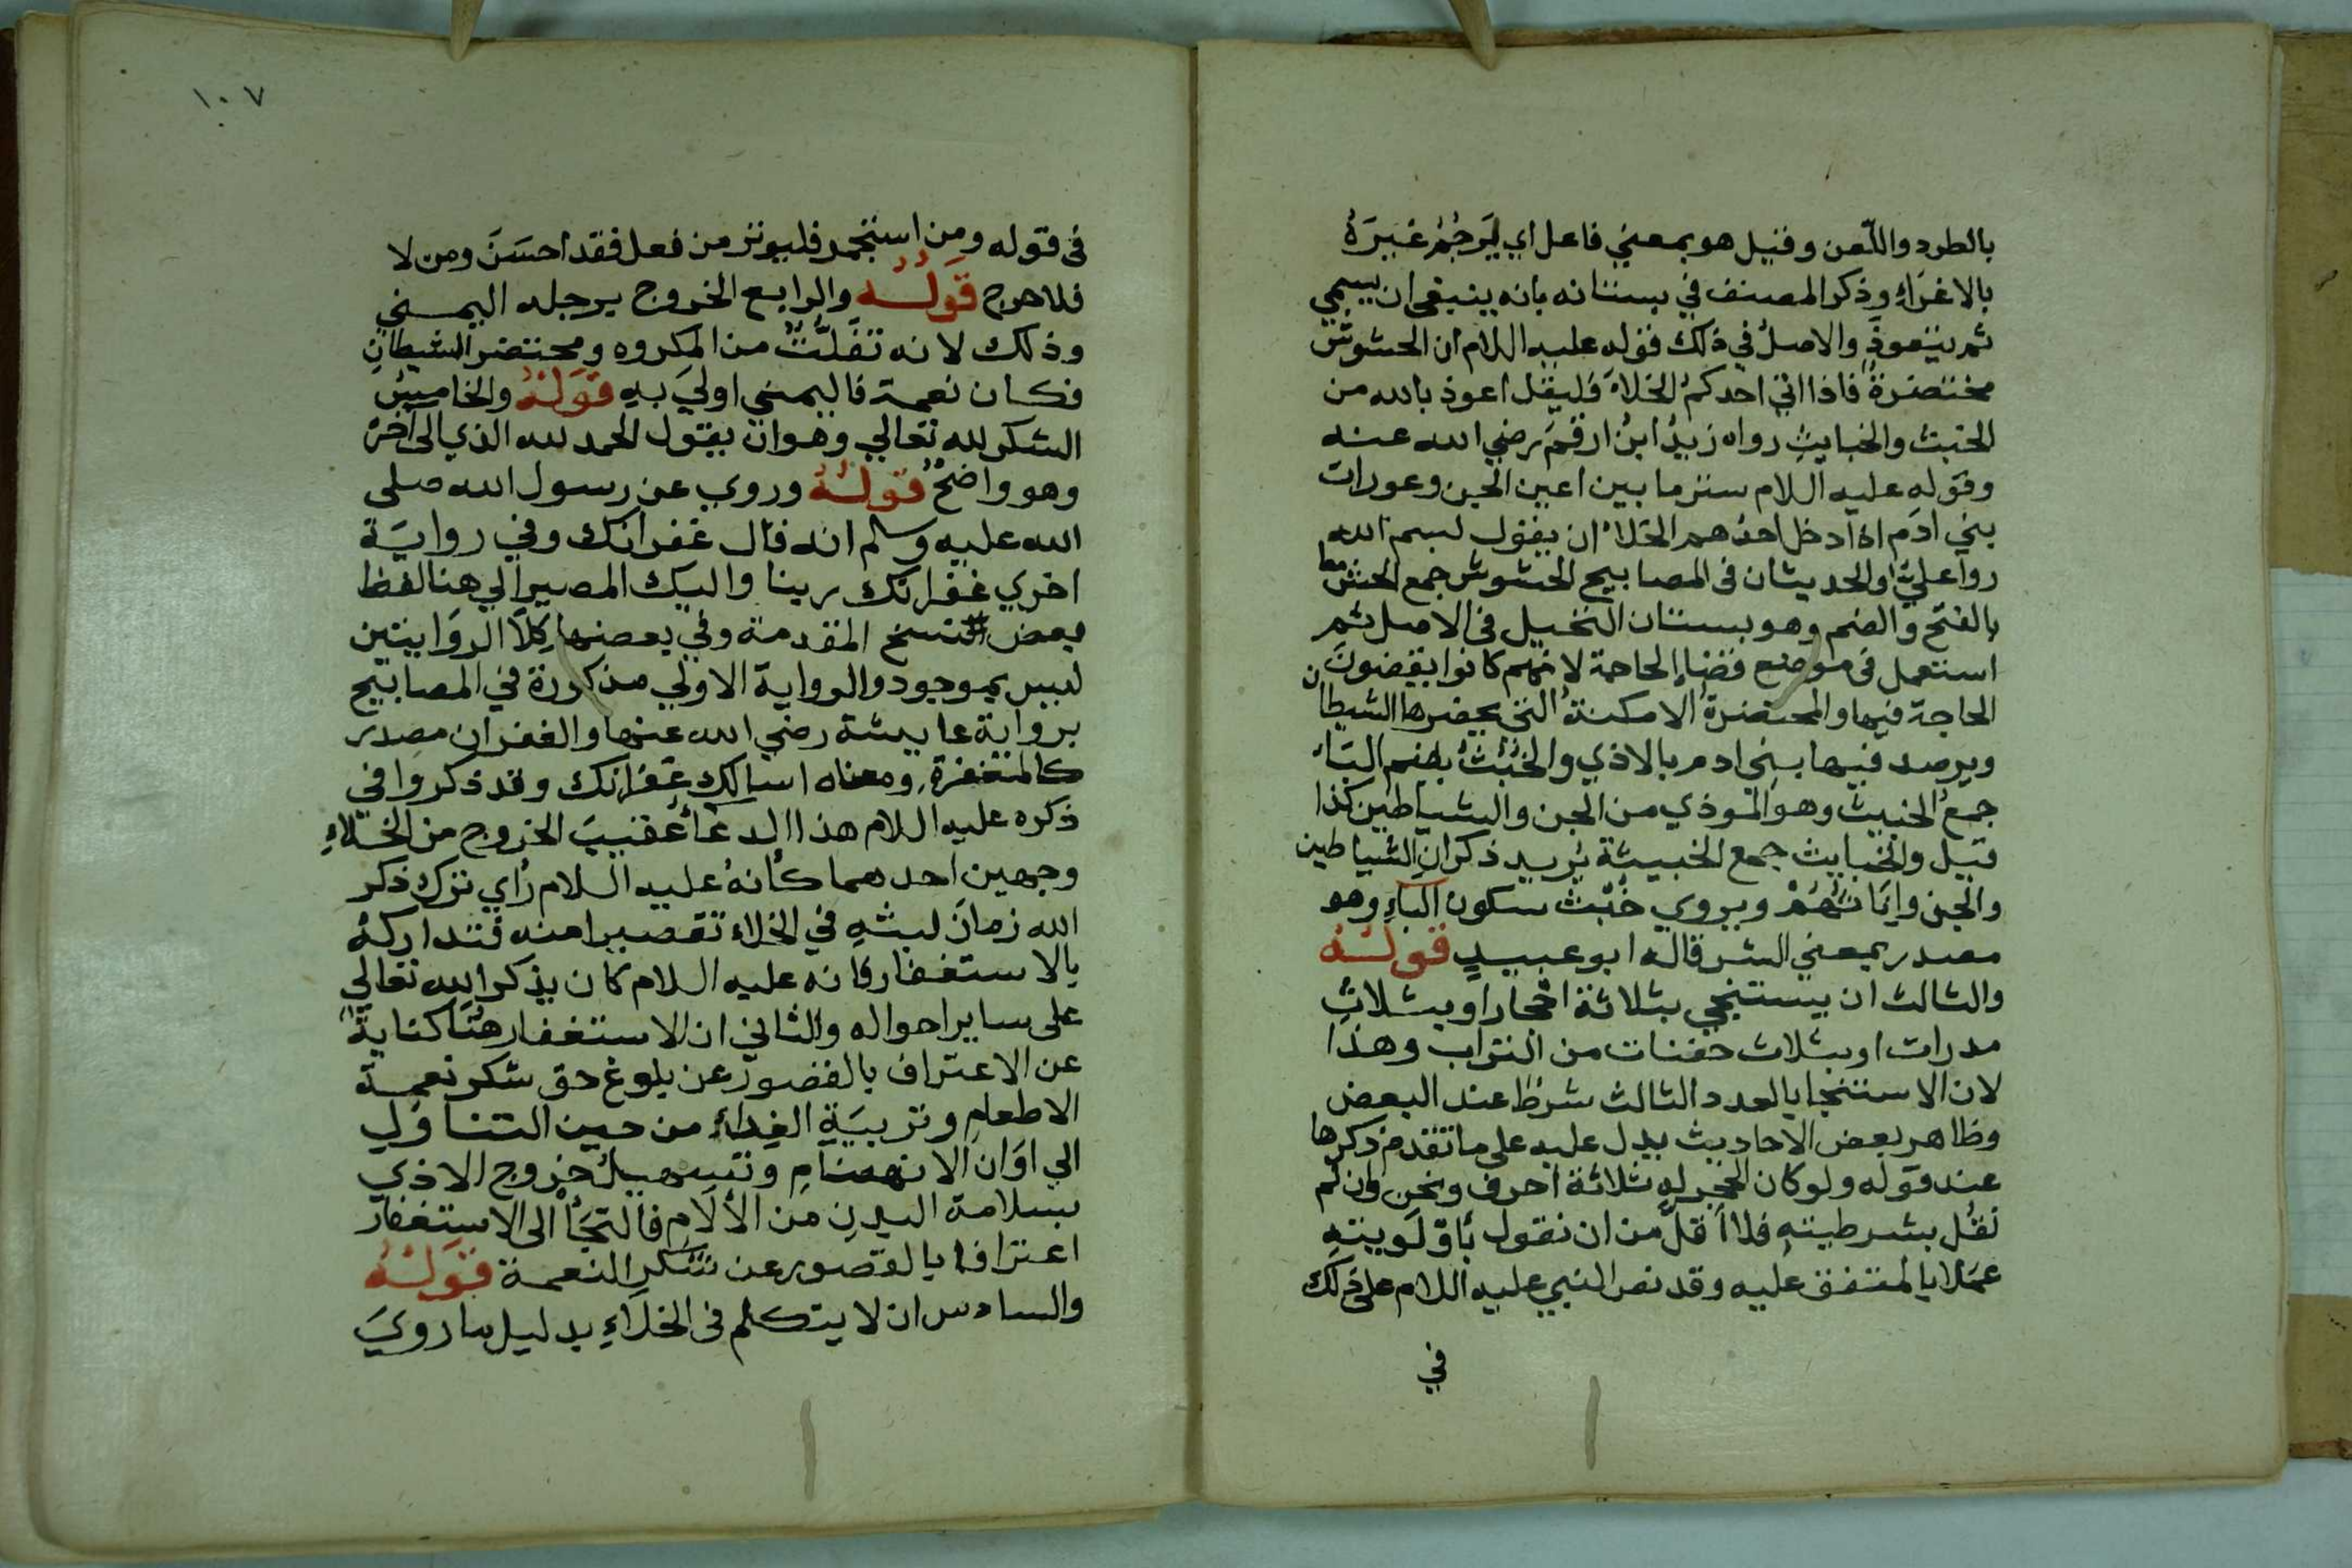 بالطرد واللعن وقيل هو بمعني فاعل اي يَرجُمُ غيرَهُ
بالاغراءِ وذكر المصنف في بستانه بانه ينبغي ان يسمي
ثم يتعوذَ والاصلُ في ذلك قوله عليه اللام ان الحشوش
محتضرةٌ فاذا اتي احدكمُ الخلاءَ فليقل اعوذ بالله من
الخبث والخبايثِ رواه زيدُ ابنُ ارقمَ رضي الله عنه
وقوله عليه اللام ستر ما بين اعين الجن وعورات
بني ادَم اذا دخل احدُهم الخلاءَ ان يقول بسم الله
رواه عليٌّ والحديثان في المصابيح الحشوش جمع الحش
بالفتح والضم وهو بستان النخيل في الاصل ثم
استعمل في موضع قضاءِ الحاجة لانهم كانوا يقضونَ
الحاجة فيها والمحتضرةُ الامكنةُ التي يحضرها الشيطان
ويرصد فيها بني ادم بالاذي والخُبُثُ بضم الباء
جمعُ الخبيث وهو الموذي من الجن والشياطين كذا
قيل والخبايث جمع الخبيثة يُريد ذكرانِ الشياطين
والجن واِنَاثَهُمْ ويروي خُبْث سكون الباءِ وهو
مصدر بمعني الشر قاله ابو عبيدٍ قولُهُ
والثالث ان يستنجي بثلاثة احجار او بثلاثِ
مدرات او بثلاث حفنات من التراب وهذا
لان الاستنجا بالعدد الثالث شرط عند البعض
وظاهر بعض الاحاديث يدل عليه علي ما تقدم ذكرها
عند قوله ولو كان الحجر له ثلاثة احرف ونحن وان لم
نقُل بشرطيتهِ فلا اَقلَّ من ان نقول بأوّلويتهِ
عملا بالمتفق عليه وقد نص النبي عليه اللام علي ذلك
في
١٠٧
في قوله ومن استجمر فليوتر من فعل فقد احسَنَ ومن لا
فلا حرج قَولُهُ والرابع الخروج برجله اليمني
وذلك لانه تفَلُّتٌ من المكروه ومحتضر الشيطانِ
فكان نعمة فاليمني اوليَ بهِ قَولهُ والخامسُ
الشكر لله تعالي وهو ان يقول الحمد لله الذي الى اخره
وهو واضحٌ قولُهُ وروي عن رسول الله صلى
الله عليه وسلم انه قال غفرانك وفي روايَة
اخري غفرانك ربنا واليك المصير الي هنا لفظ
بعض النسخ المقدمة وفي بعضها كِلاَ الروَايتين
ليس بموجود والرواية الاولي مذكورة في المصابيح
برواية عايشة رضي الله عنها والغفران مصدر
كالمغفرة ومعناه اسالك غفرانك وقد ذكروا في
ذكره عليه اللام هذا الدعاَءُ عُقَيبَ الخروج من الخلاءِ
وجهين احدهما كأنهُ عليه السلام رُاي ترك ذكر
الله زمانَ لبثهِ في الخلاء تقصيرا منه فتداركهُ
بالاستغفار فانه عليه اللام كان يذكر الله تعالي
على ساير احواله والثاني ان الاستغفار هُنَا كنايةٌ
عن الاعتراف بالقصور عن بلوغ حق شكر نعمة
الاطعامِ وتربيَةِ الغِداءِ من حين التناوُلِ
الي اوَان الانهضامِ وتسهيلُ خروج الاذي
بسلامة البدنِ من الألَامِ فالتجَأَ الى الاستغفار
اعترافا بالقصور عن شكرِ النعمة قَولُهُ
والسادس ان لا يتكلم في الخلَاءِ بدليل ما رويَ